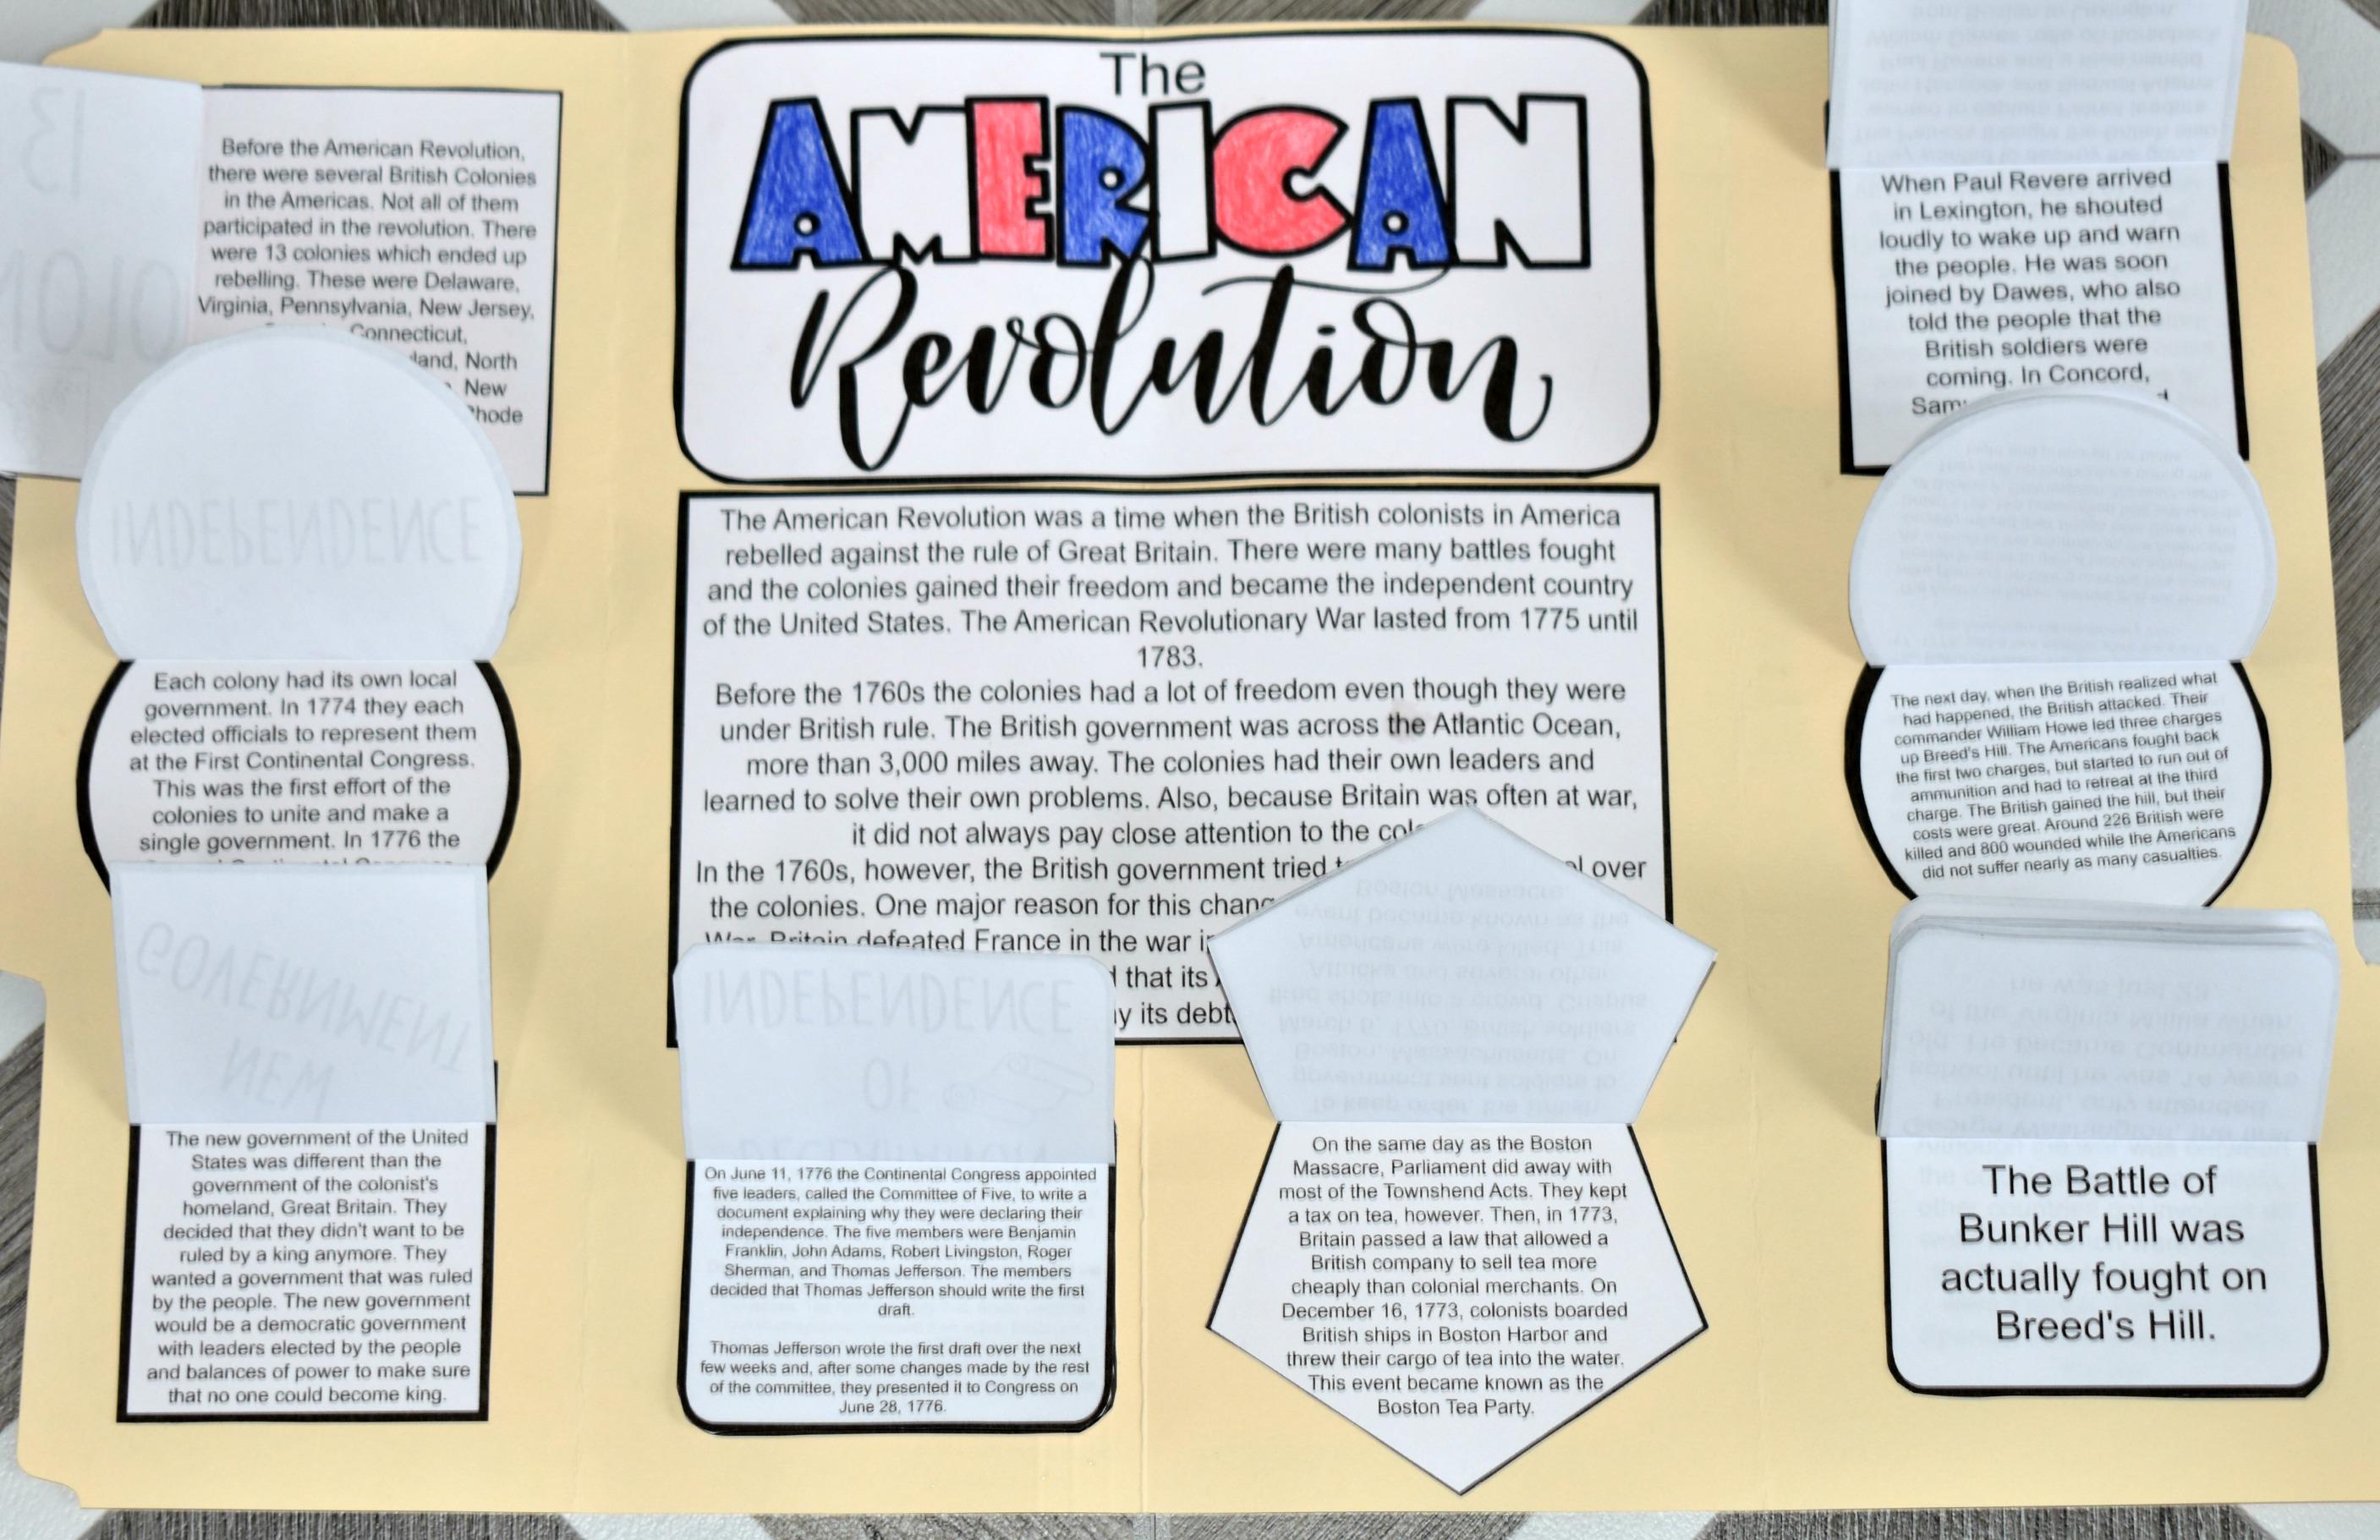 The
AMERICAN
Revolution
13
COLO
Before the American Revolution,
there were several British Colonies
in the Americas. Not all of them
participated in the revolution. There
were 13 colonies which ended up
rebelling. These were Delaware,
Virginia, Pennsylvania, New Jersey,
Connecticut,
land, North
New
Rhode
INDEPENDENCE
Each colony had its own local
government. In 1774 they each
elected officials to represent them
at the First Continental Congress.
This was the first effort of the
colonies to unite and make a
single government. In 1776 the
NEW
GOVERNMENT
The new government of the United
States was different than the
government of the colonist's
homeland, Great Britain. They
decided that they didn't want to be
ruled by a king anymore. They
wanted a government that was ruled
by the people. The new government
would be a democratic government
with leaders elected by the people
and balances of power to make sure
that no one could become king.
The American Revolution was a time when the British colonists in America
rebelled against the rule of Great Britain. There were many battles fought
and the colonies gained their freedom and became the independent country
of the United States. The American Revolutionary War lasted from 1775 until
1783.
Before the 1760s the colonies had a lot of freedom even though they were
under British rule. The British government was across the Atlantic Ocean,
more than 3,000 miles away. The colonies had their own leaders and
learned to solve their own problems. Also, because Britain was often at war,
it did not always pay close attention to the col
In the 1760s, however, the British government tried over
the colonies. One major reason for this chang
War. Britain defeated France in the war
that its
its debt
DECLARATION
OF
INDEPENDENCE
On June 11, 1776 the Continental Congress appointed
five leaders, called the Committee of Five, to write a
document explaining why they were declaring their
independence. The five members were Benjamin
Franklin, John Adams, Robert Livingston, Roger
Sherman, and Thomas Jefferson. The members
decided that Thomas Jefferson should write the first
draft.
Thomas Jefferson wrote the first draft over the next
few weeks and, after some changes made by the rest
of the committee, they presented it to Congress on
June 28, 1776.
To keep order, the British
government sent soldiers to
Boston, Massachusetts. On
March 5, 1770, British soldiers
fired shots into a crowd. Crispus
Attucks and several other
Americans were killed. This
event became known as the
Boston Massacre.
On the same day as the Boston
Massacre, Parliament did away with
most of the Townshend Acts. They kept
a tax on tea, however. Then, in 1773,
Britain passed a law that allowed a
British company to sell tea more
cheaply than colonial merchants. On
December 16, 1773, colonists boarded
British ships in Boston Harbor and
threw their cargo of tea into the water.
This event became known as the
Boston Tea Party.
When Paul Revere arrived
in Lexington, he shouted
loudly to wake up and warn
the people. He was soon
joined by Dawes, who also
told the people that the
British soldiers were
coming. In Concord,
Sam
The next day, when the British realized what
had happened, the British attacked. Their
commander William Howe led three charges
up Breed's Hill. The Americans fought back
the first two charges, but started to run out of
ammunition and had to retreat at the third
charge. The British gained the hill, but their
costs were great. Around 226 British were
killed and 800 wounded while the Americans
did not suffer nearly as many casualties.
The Battle of
Bunker Hill was
actually fought on
Breed's Hill.